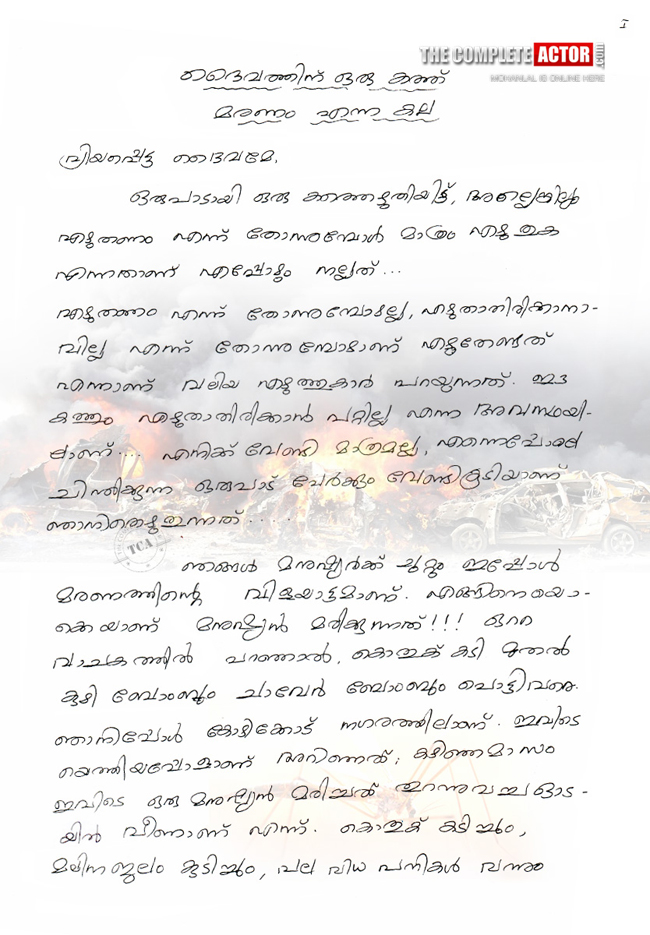 I
THE COMPLETE ACTOR .com
MOHANLAL IS ONLINE HERE
ദൈവത്തിന് ഒരു കത്ത്
മരണം എന്ന കല
പ്രിയപ്പെട്ട ദൈവമേ,
ഒരുപാടായി ഒരു കത്തെഴുതിയിട്ട്, അല്ലെങ്കിലും
എഴുതണം എന്ന് തോന്നുമ്പോൾ മാത്രം എഴുതുക
എന്നതാണ് എപ്പോഴും നല്ലത്...
എഴുതണം എന്ന് തോന്നുമ്പോഴല്ല, എഴുതാതിരിക്കാനാ-
വില്ല എന്ന് തോന്നുമ്പോഴാണ് എഴുതേണ്ടത്
എന്നാണ് വലിയ എഴുത്തുകാർ പറയുന്നത്. ഈ
കത്തും എഴുതാതിരിക്കാൻ പറ്റില്ല എന്ന അവസ്ഥയി-
ലാണ്.... എനിക്ക് വേണ്ടി മാത്രമല്ല, എന്നെപ്പോലെ
ചിന്തിക്കുന്ന ഒരുപാട് പേർക്കും വേണ്ടികൂടിയാണ്
ഞാനിതെഴുതുന്നത്.....
TCA
ഞങ്ങൾ മനുഷ്യർക്ക് ചുറ്റും ഇപ്പോൾ
മരണത്തിന്റെ വിളയാട്ടമാണ്. എങ്ങിനെയൊ-
ക്കെയാണ് മനുഷ്യൻ മരിക്കുന്നത്!!! ഒറ്റ
വാചകത്തിൽ പറഞ്ഞാൽ, കൊതുക് കടി മുതൽ
കുഴി ബോംബും ചാവേർ ബോംബും പൊട്ടിവരെ.
ഞാനിപ്പോൾ കോഴിക്കോട് നഗരത്തിലാണ്. ഇവിടെ
യെത്തിയപ്പോളാണ് അറിഞ്ഞത്; കഴിഞ്ഞമാസം
ഇവിടെ ഒരു മനുഷ്യൻ മരിച്ചത് തുറന്നുവച്ച ഓട-
യിൽ വീണാണ് എന്ന്. കൊതുക് കടിച്ചും,
മലിനജലം കുടിച്ചും, പല വിധ പനികൾ വന്നും